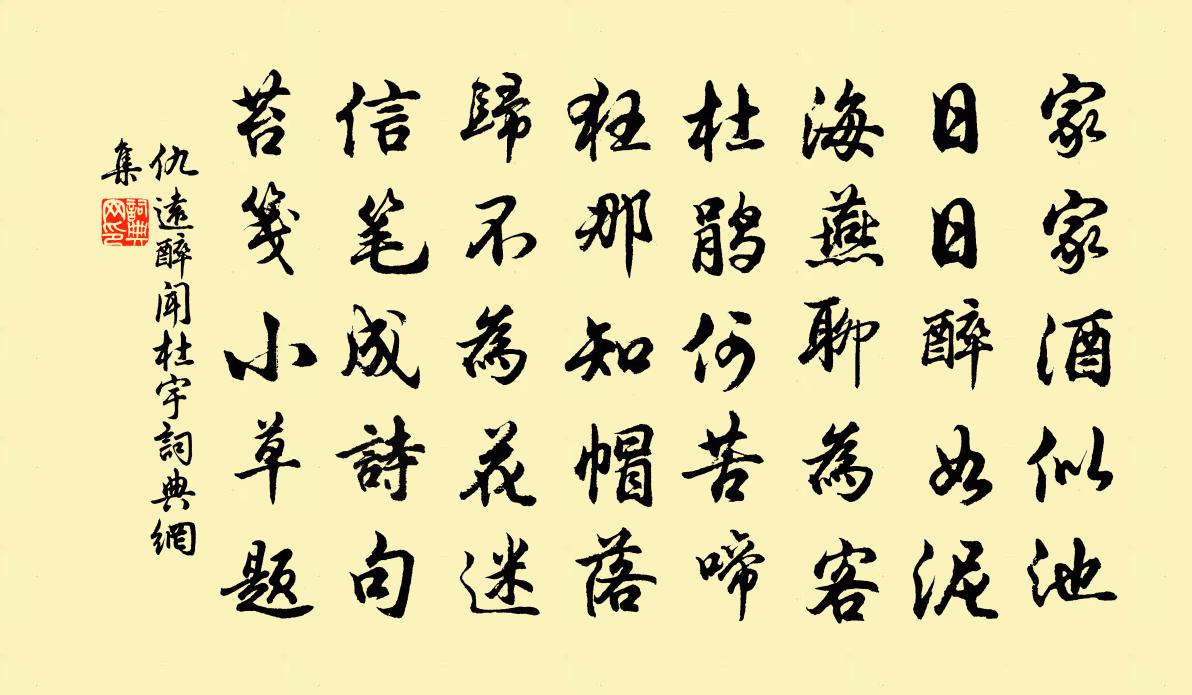 家家酒似池
日日醉如泥
海燕聊為客
杜鹃何苦啼
狂那知帽落
歸不為花迷
信笔成詩句
苔箋小草题
仇遠醉聞杜宇詞典網
集
詞典
网印